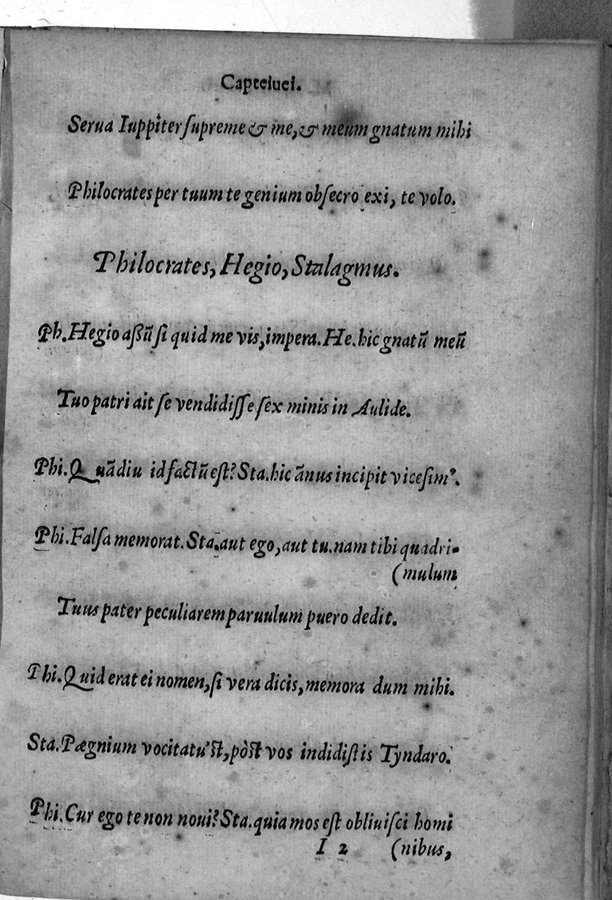 Capteiuei.
Serua Iuppiter ſupreme & me, & meum gnatum mihi
Philocrates per tuum te genium obſecro exi, te volo.
Philocrates, Hegio, Stalagmus.
Ph. Hegio aßũ ſi quid me vis, impera. He. hic gnatũ meũ
Tuo patri ait ſe vendidiſſe ſex minis in Aulide.
Phi. Quãdiu id factũ eſt? Sta. hic ãnus incipit viceſimꝰ.
Phi. Falſa memorat. Sta. aut ego, aut tu. nam tibi quadri-
(mulum
Tuus pater peculiarem paruulum puero dedit.
Phi. Quid erat ei nomen, ſi vera dicis, memora dum mihi.
Sta. Pægnium vocitatu'ſt, pòſt vos indidiſtis Tyndaro.
Phi. Cur ego te non noui? Sta. quia mos eſt obliuiſci homi
I 2 (nibus,